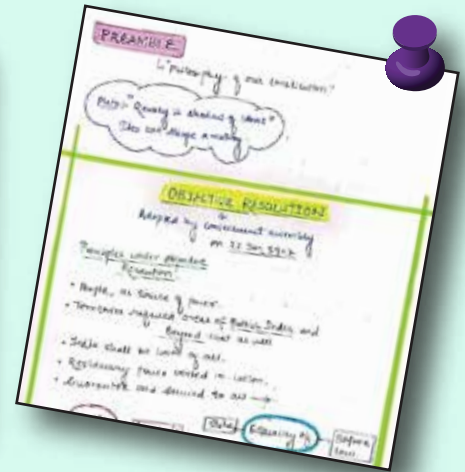 PREAMBLE
"philosophy of our constitution"
Plato: "Reality is shadow of ideas"
Idea can shape a reality
OBJECTIVE RESOLUTION
Adopted by constituent assembly
on 22 Jan,
Principles under objective
Resolution:
• People, as source of power.
• Territories areas of British India and
Beyond that as well
• India shall be of all.
• Residuary power vested in union.
• Guarantee and secured to all →
State
Equality of
before
law